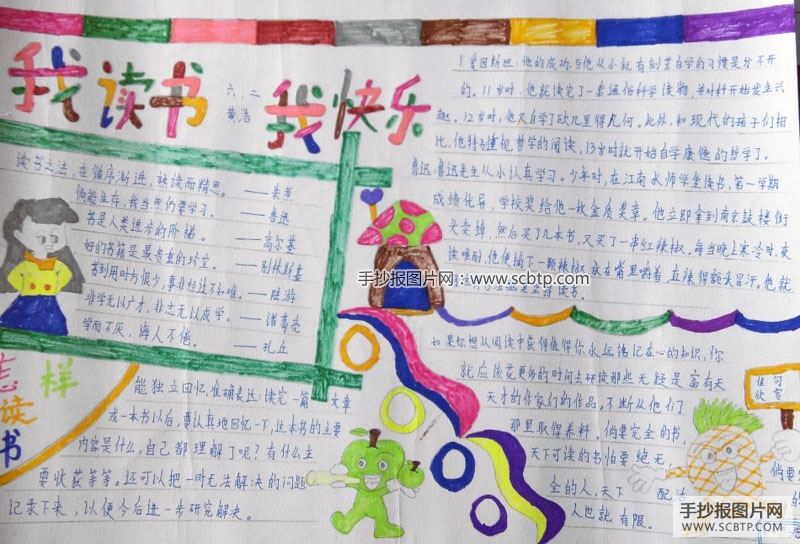 我读书 我快乐
六、二
黄浩
读书之法，在循序渐进，熟读而精思。 ——朱熹
倘能生存，我当然仍要学习。 ——鲁迅
书是人类进步的阶梯。 ——高尔基
好的书籍是最贵重的珍宝。 ——别林斯基
书到用时方恨少，事非经过不知难。——陆游
非学无以广才，非志无以成学。 ——诸葛亮
学而不厌，诲人不倦。 ——孔丘
1.爱因斯坦：他的成功与他从小就有刻苦自学的习惯是分不开
的。11岁时，他就读完了一套通俗科学读物，并对科开始发生兴
趣。12岁时，他又自学了欧几里得几何。此外，和现代的孩子们相
比，他特强重视哲学的阅读，13岁时就开始自学康德的哲学了。
鲁迅：鲁迅先生从小认真学习。少年时，在江南水师学堂读书，第一学期
成绩优异，学校奖给他一枚金质奖章。他立即拿到南京鼓楼街
头卖掉，然后买了几本书，又买了一串红辣椒。每当晚上寒冷时，夜
读难耐，他便摘下一颗辣椒，放在嘴里嚼着，直辣得额头冒汗。他就
坚持读书
手抄报图片网：www.scbtp.com
怎样
读
书
能独立回忆，准确表达：读完一篇文章
或一本书以后，要认真地回忆一下，这本书的主要
内容是什么，自己都理解了呢？有什么主
要收获等等。还可以把一时无法解决的问题
记录下来，以便今后进一步研究解决。
如果你想从阅读中获得值得你永远铭记在心的知识，你
就应该花更多的时间去研读那些无疑是富有天
天才的作家们的作品，不断从他们
那里取得养料。倘要完全的书，
天下可读的书怕要绝无，
全的人，天下配活
人也就有限。
佳句
欣赏
倘要
手抄报图片网
WWW.SCBTP.COM